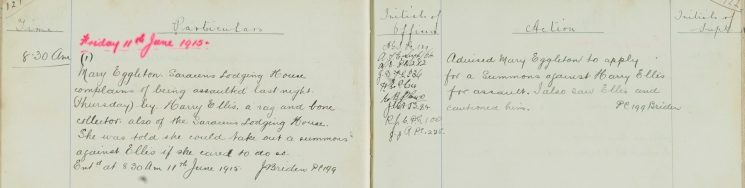 121
Time
Particulars
Friday 11th June 1915.
8-30 Am
(1)
Mary Eggleton. Saracens Lodging House
complains of being assaulted last night.
Thursday) by. Harry Ellis, a rag and bone
collector. also of the Saracens Lodging House.
She was told she could take out a summons
against Ellis if she cared to do so.
Ent'd at 8.30 Am 11th June 1915. J Breden PC 199
Initials of
Officer
Action
Advised Mary Eggleton to apply
for a Summons against Harry Ellis
for assault. I also saw Ellis and
cautioned him. PC 199 Breden
Initials of
Supt